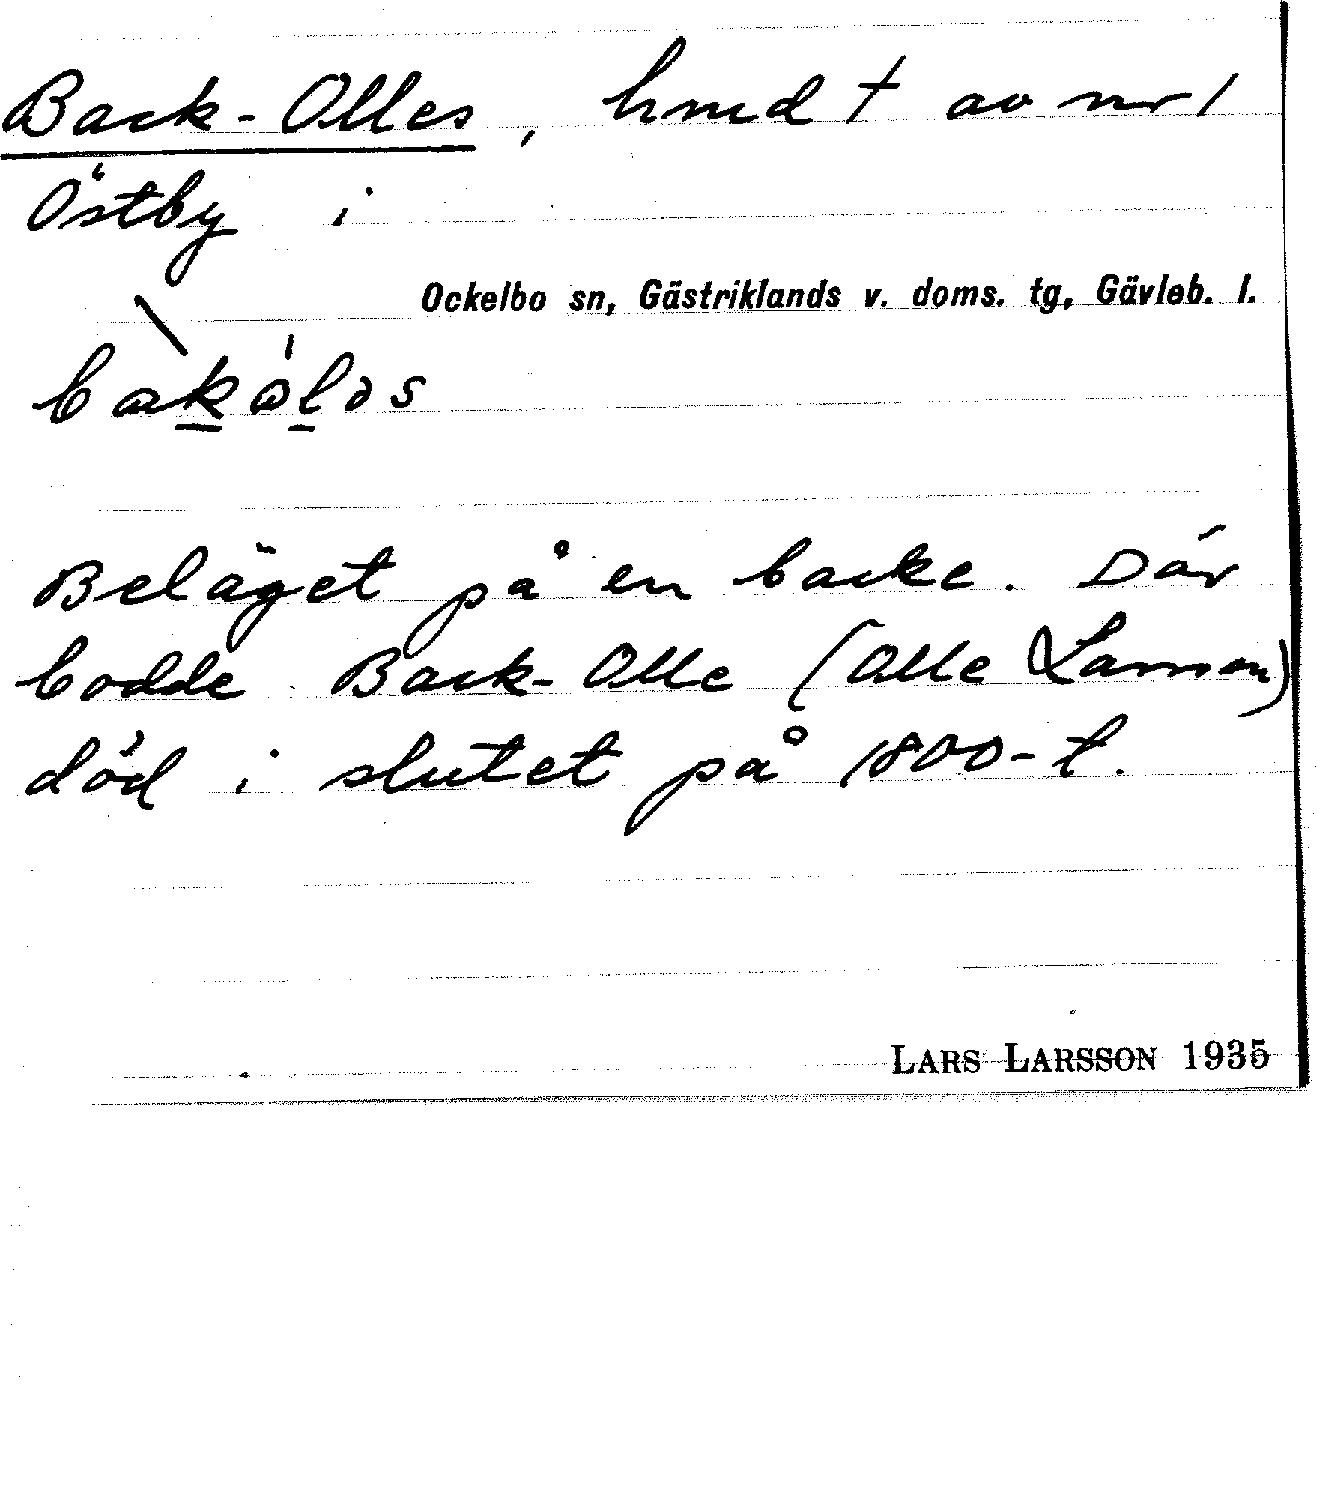 Back-Olles, hmd † av nr 1
Östby i
Ockelbo sn, Gästriklands v. doms. tg, Gävleb. l.
bakɑ̀ləs
Beläget på en backe. Där
bodde Back-Olle (Olle Larsson)
död i slutet på 1800-t.
LARS LARSSON 1935